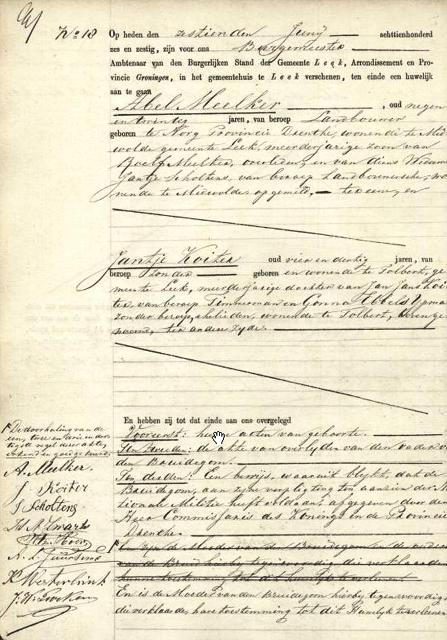 No 18
Op heden den zestienden Junij achttienhonderd
zes en zestig, zijn voor ons Burgemeester
Ambtenaar van den Burgerlijken Stand der Gemeente Leek, Arrondissement en Pro-
vincie Groningen, in het gemeentehuis te Leek verschenen, ten einde een huwelijk
aan te gaan
Abel Meelker, oud negen
en twintig jaren, van beroep Landbouwer
geboren te Norg Provincie Drenthe, wonende te Mid
wolde gemeente Leek, meerderjarige zoon van
Roelf Meelker, overleden, en van diens Weduwe
Jantje Scholtens, van beroep Landbouwersche, wo
nende te Midwolde opgemeld, ter eener, en
Jantje Koiter oud vier en dertig jaren, van
beroep zonder geboren en wonende te Tolbert, ge
meente Leek, meerderjarige dochter van Jan Jans Koi
ter, van beroep Timmerman en Abels
zonder beroep, echtelieden, wonende te Tolbert,
ter andere zijde.
En hebben zij tot dat einde aan ons overgelegd
Vooreerst: hunne acten van geboorte.
Ten tweeden: de akte van overlijden van den vader v
den Bruidegom.
Ten derden: Een bewijs, waaruit blijkt, dat de
Bruidegom, aan zijne verpligting ten aanzien der Na
tionale Militie heeft voldaan, afgegeven door den
Heer Commissaris des Konings in de Provincie
Drenthe.
En zijn de Moeder van den Bruidegom
van de Bruid hierbij tegenwoordig die verklaarden
hunne toestemming tot dit huwelijk te verleenen
En is de Moeder van den Bruidegom hierbij tegenwoordig
die verklaarde hare toestemming tot dit Huwelijk te verleenen
De doorhaling van de
een, twee en drie en der
tigste regel dezer akte,
erkend en goedgekeurd
A. Meelker.
J Koiter
J Scholtens